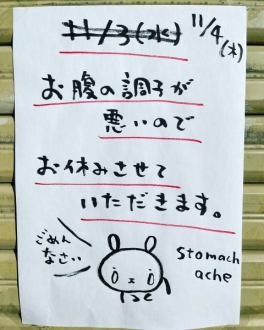 11/3(水)
11/4
(木)
お腹の調子が
悪いので
お休みさせて
いただきます。
ごめん
なさい
Stomach
ache